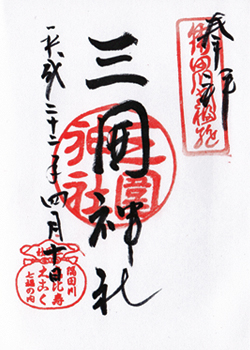 奉拝
隅田川七福神
三囲神社
三囲神社
平成二十二年四月十日
隅田川
恵比寿
大こく
七福の内